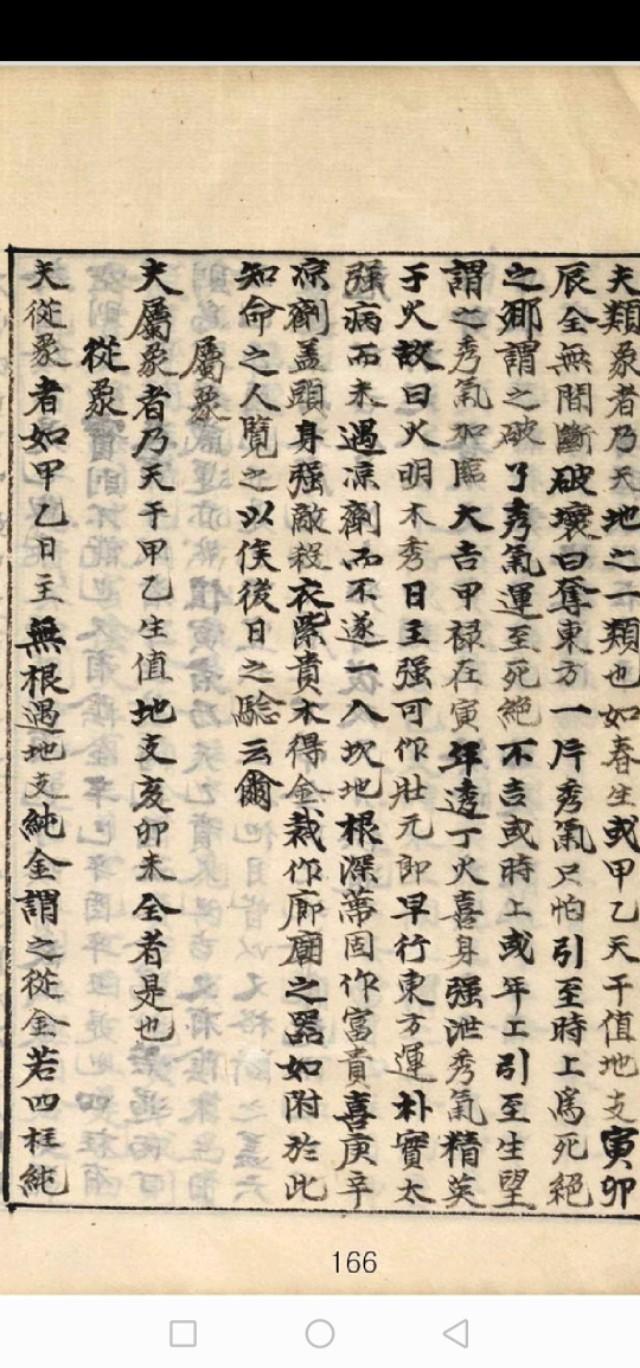 夫類象者乃天地之一類也如春生或甲乙天干值地支寅卯
辰全無間斷破壞曰奪東方一片秀氣只怕引至時上爲死絕
之鄉謂之破了秀氣運至死絕不吉或時上或年上引至生望
謂之秀氣加臨大吉甲祿在寅年透丁火喜身强泄秀氣精英
于火故曰火明木秀日主强可作壯元郎早行東方運朴實太
强病而未遇凉劑而不遂一入坎地根深蒂固作富貴喜庚辛
凉劑盖頭身强敵殺衣紫貴木得金裁作廊廟之器如附於此
知命之人覽之以俟後日之騐云爾
屬象
夫屬象者乃天干甲乙生值地支亥卯未全者是也
從象
夫從象者如甲乙日主無根遇地支純金謂之從金若四柱純
166